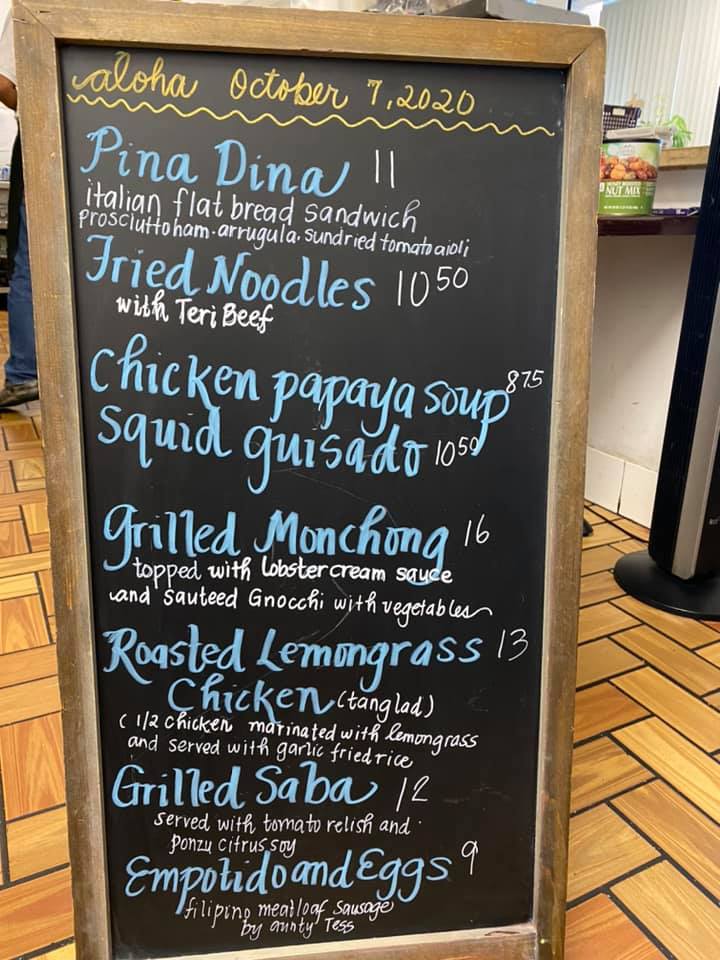 aloha October 7, 2020
Pina Dina 11
italian flat bread sandwich
prosciutto ham. arrugula. sundried tomato aioli
Fried Noodles 10 50
with Teri Beef
Chicken papaya soup 8 75
squid guisado 10 50
Grilled Monchong 16
topped with lobster cream sauce
and sauteed Gnocchi with vegetables
Roasted Lemongrass 13
Chicken (tanglad)
( 1/2 chicken marinated with lemongrass
and served with garlic fried rice
Grilled Saba 12
served with tomato relish and
Ponzu citrus soy
Empotido and Eggs 9
filipino meatloaf sausage
by aunty Tess
NUT MIX